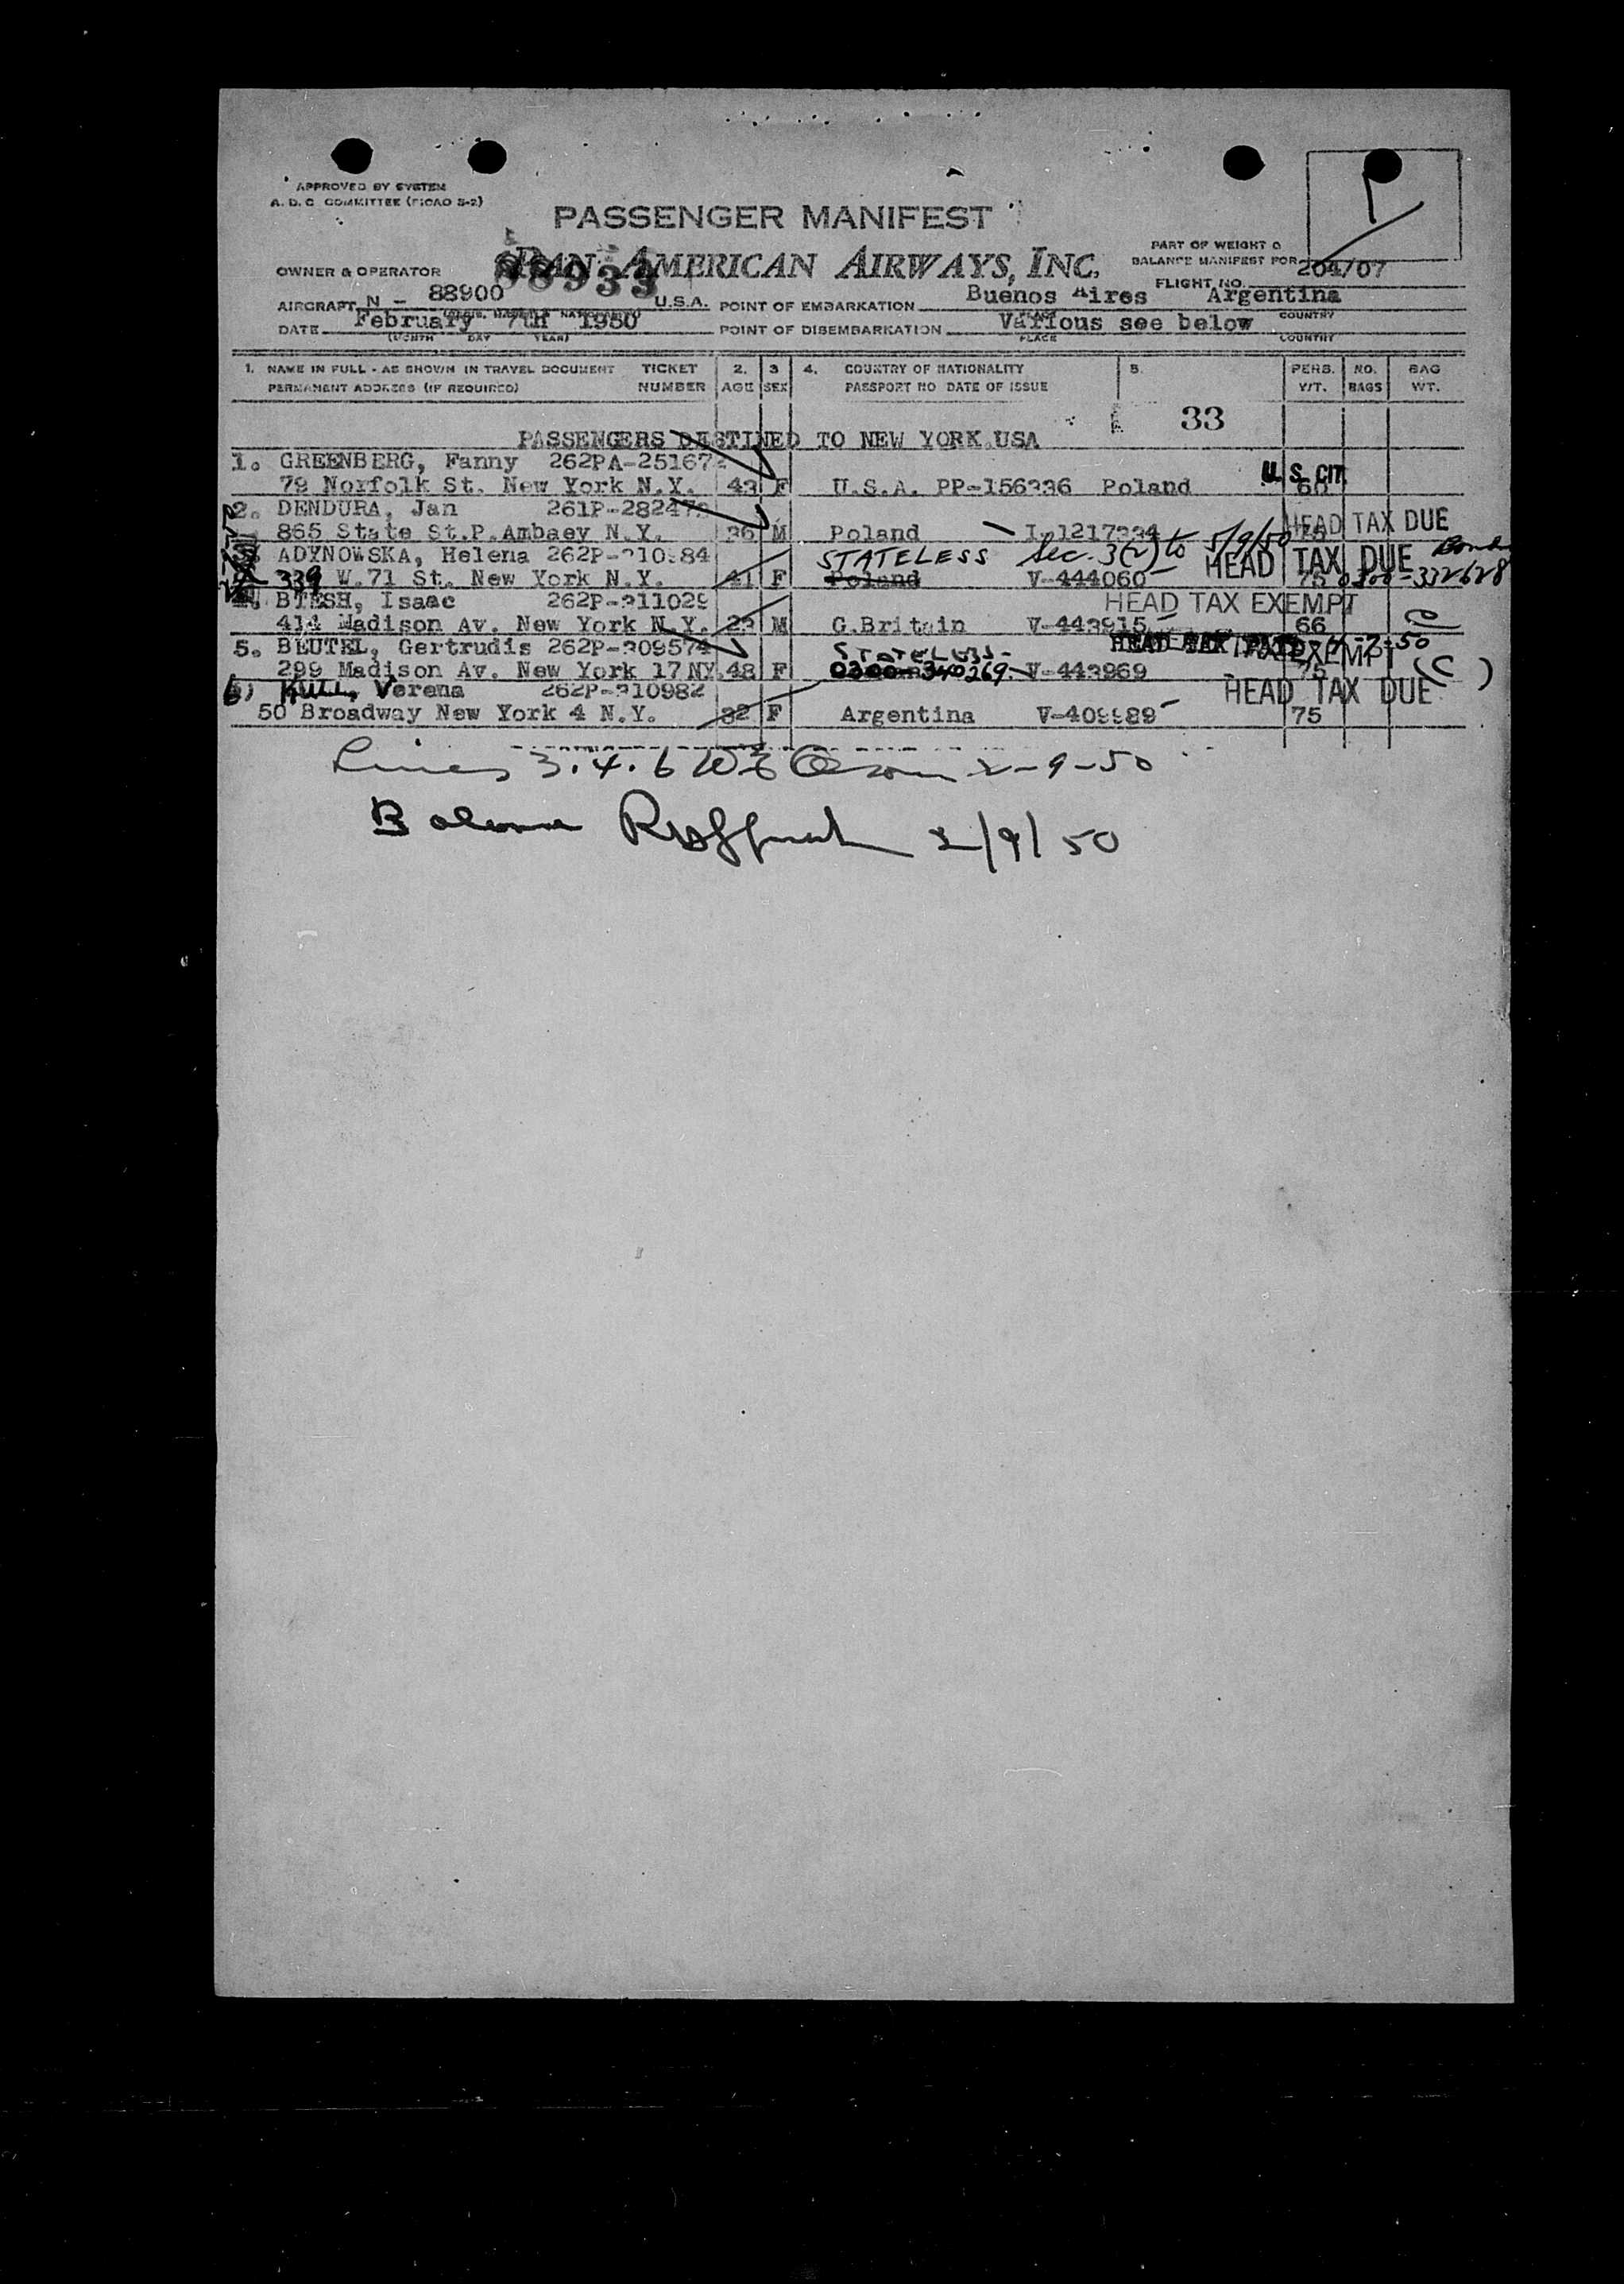 APPROVED BY SYSTEM
A. D. C COMMITTEE (FICAO S-2)
PASSENGER MANIFEST
PAN AMERICAN AIRWAYS, INC.
PART OF WEIGHT &
BALANCE MANIFEST FOR
OWNER & OPERATOR
FLIGHT NO. 204/07
AIRCRAFT N - 88900 U.S.A. POINT OF EMBARKATION Buenos Aires Argentina
PLACE COUNTRY
DATE February 7th 1950 POINT OF DISEMBARKATION Various see below
(MONTH DAY YEAR) PLACE COUNTRY
1. NAME IN FULL - AS SHOWN IN TRAVEL DOCUMENT TICKET 2. 3 4. COUNTRY OF NATIONALITY 5. PERS. NO. BAG
PERMANENT ADDRESS (IF REQUIRED) NUMBER AGE SEX PASSPORT NO DATE OF ISSUE WT. BAGS WT.
33
PASSENGERS DESTINED TO NEW YORK USA
1. GREENBERG, Fanny 262PA-251672
U. S. CIT.
79 Norfolk St. New York N.Y. 43 F U.S.A. PP-156336 Poland 60
2. DENDURA, Jan 261P-28247
HEAD TAX DUE
865 State St.P.Ambaey N.Y. 36 M Poland
ADYNOWSKA, Helena 262P-310984 STATELESS Sec. 3(2) to 5/9/50
HEAD TAX DUE
339 W.71 St. New York N.Y. 41 F Poland V-444060 75 0300-332628
BTESH, Isaac 262P-311029 HEAD TAX EXEMPT
414 Madison Av. New York N.Y. 23 M G.Britain V-443915 66
5. BEUTEL, Gertrudis 262P-309574 STATELESS
299 Madison Av. New York 17 NY. 48 F 0300-340269 V-443969 75 (C)
6) KULL, Verena 262P-310982 HEAD TAX DUE
50 Broadway New York 4 N.Y. 32 F Argentina V-409989 75
Lines 3.4.6 2-9-50
2/9/50